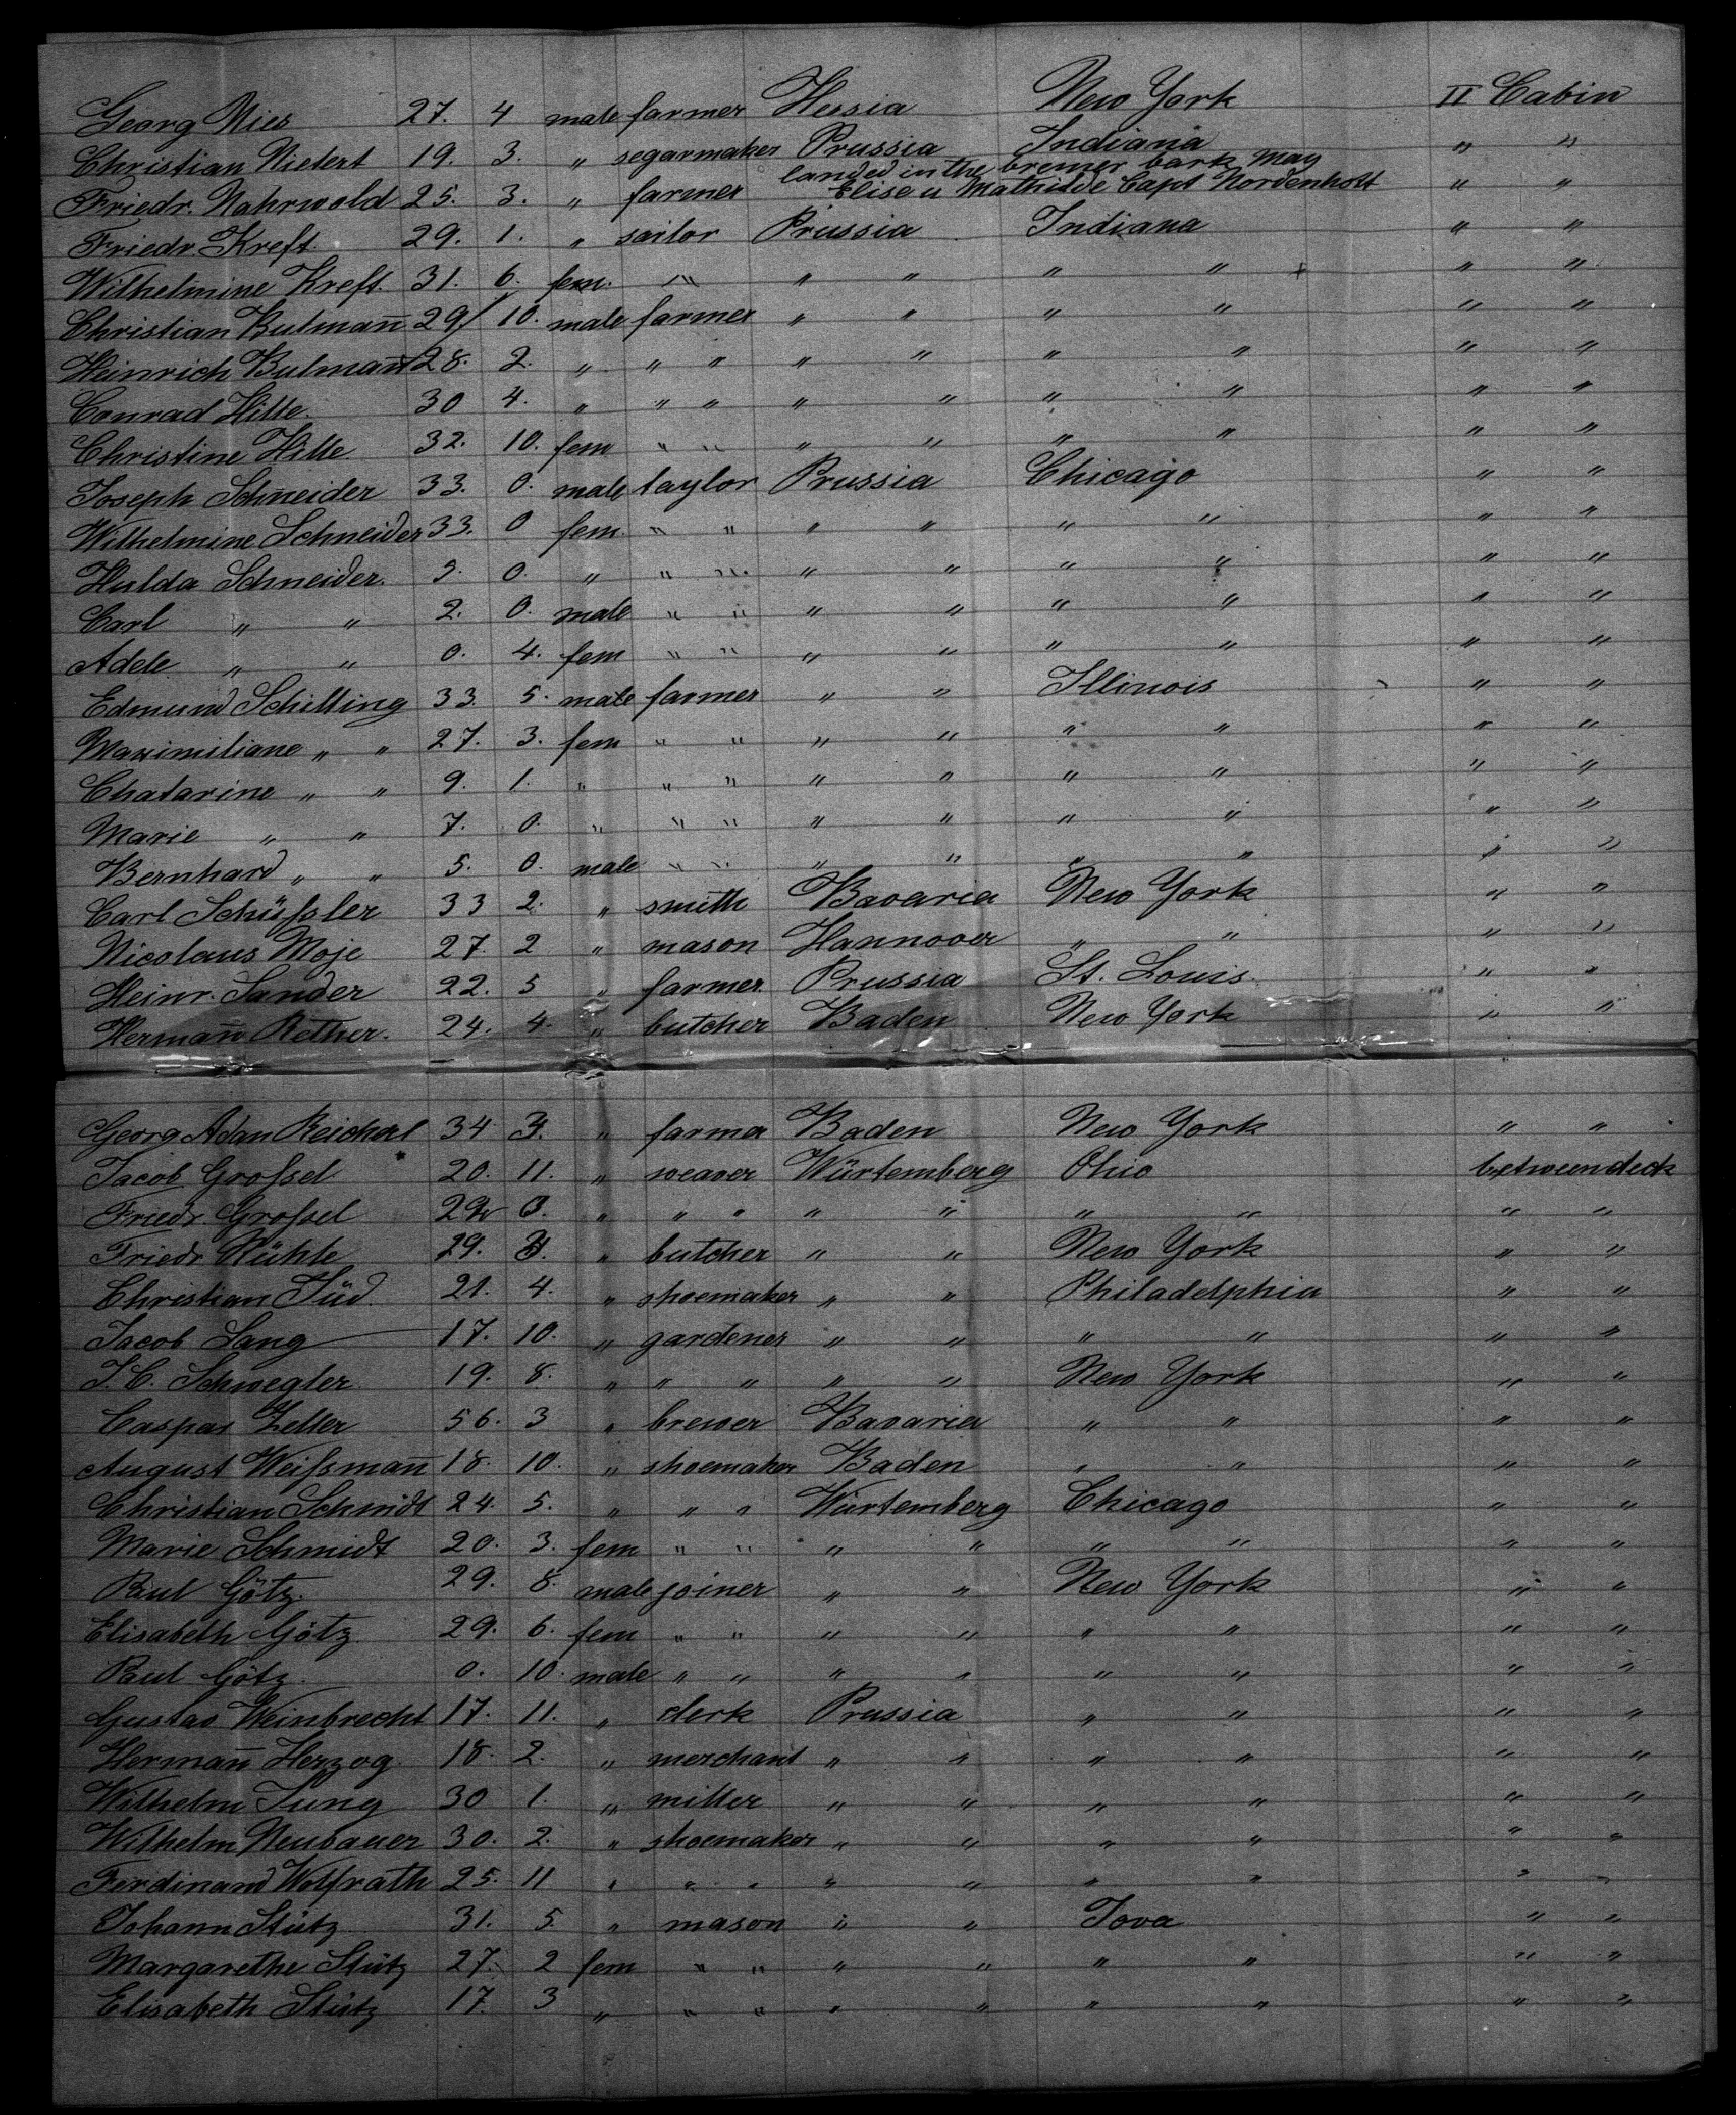 Georg Nies 27. 4 male farmer Hessia New York II Cabin
Christian Nietert 19. 3. " segarmaker Prussia Indiana " "
landed in the bremer bark May
Friedr. Nahrwold 25. 3. " farmer Elise u Mathilde Capt Nordenholt " "
Friedr. Kreft 29. 1. " sailor Prussia Indiana " "
Wilhelmine Kreft. 31. 6. fem. " " " " " " "
Christian Bulman̅ 29 10. male farmer " " " " " "
Heinrich Bulman̅ 28. 2. " " " " " " " " "
Conrad Hitte. 30 4. " " " " " " " " "
Christine Hitte 32. 10. fem " " " " " " " "
Joseph Schneider 33. 0. male taylor Prussia Chicago " "
Wilhelmine Schneider 33. 0 fem. " " " " " " " "
Hulda Schneider. 3. 0. " " " " " " " " "
Carl " " 2. 0. male " " " " " " " "
Adele " " 0. 4. fem " " " " " " " "
Edmund Schilling 33. 5. male farmer " " Illinois " "
Maximiliane " " 27. 3. fem " " " " " " " "
Chatarine " " 9. 1. " " " " " " " " "
Marie " " 7. 0. " " " " " " " " "
Bernhard " " 5. 0. male " " " " " " " "
Carl Schüssler 33 2. " smith Bavaria New York " "
Nicolaus Moje 27. 2 " mason Hannover " " " "
Heinr. Sander 22. 5 " farmer Prussia St. Louis " "
Herman̅ Rether. 24. 4. " butcher Baden New York " "
Georg Adam Reichert 34 " farmer Baden New York " "
Jacob Grossel 20. 11. " weaver Würtemberg Ohio betweendeck
Friedr. Grossel " " " " " " " " "
Friedr Rühle 29. " butcher " " New York " "
Christian Süd. 21. 4. " shoemaker " " Philadelphia " "
Jacob Lang 17. 10. " gardener " " " " " "
J. C. Schwegler 19. 8. " " " " " New York " "
Caspar Zeller 56. 3 " brewer Bavaria " " " "
August Weissman̅ 18. 10. " shoemaker Baden " " " "
Christian Schmidt 24. 5. " " " Würtemberg Chicago " "
Marie Schmidt 20. 3. fem " " " " " " " "
Paul Götz. 29. 8. male joiner " " New York " "
Elisabeth Götz. 29. 6. fem " " " " " " " "
Paul Götz. 0. 10. male " " " " " " " "
Gustav Weinbrecht 17. 11. " clerk Prussia " " " "
Herman̅ Herzog. 18. 2. " merchant " " " " " "
Wilhelm Jung 30 1. " miller " " " " " "
Wilhelm Neubauer 30. 2. " shoemaker " " " " " "
Ferdinand Wolfrath 25. 11 " " " " " " " " "
Johann Stütz 31. 5. " mason " " Iova " "
Margarethe Stütz 27. 2 fem " " " " " " " "
Elisabeth Stütz 17. 3 " " " " " " " " "